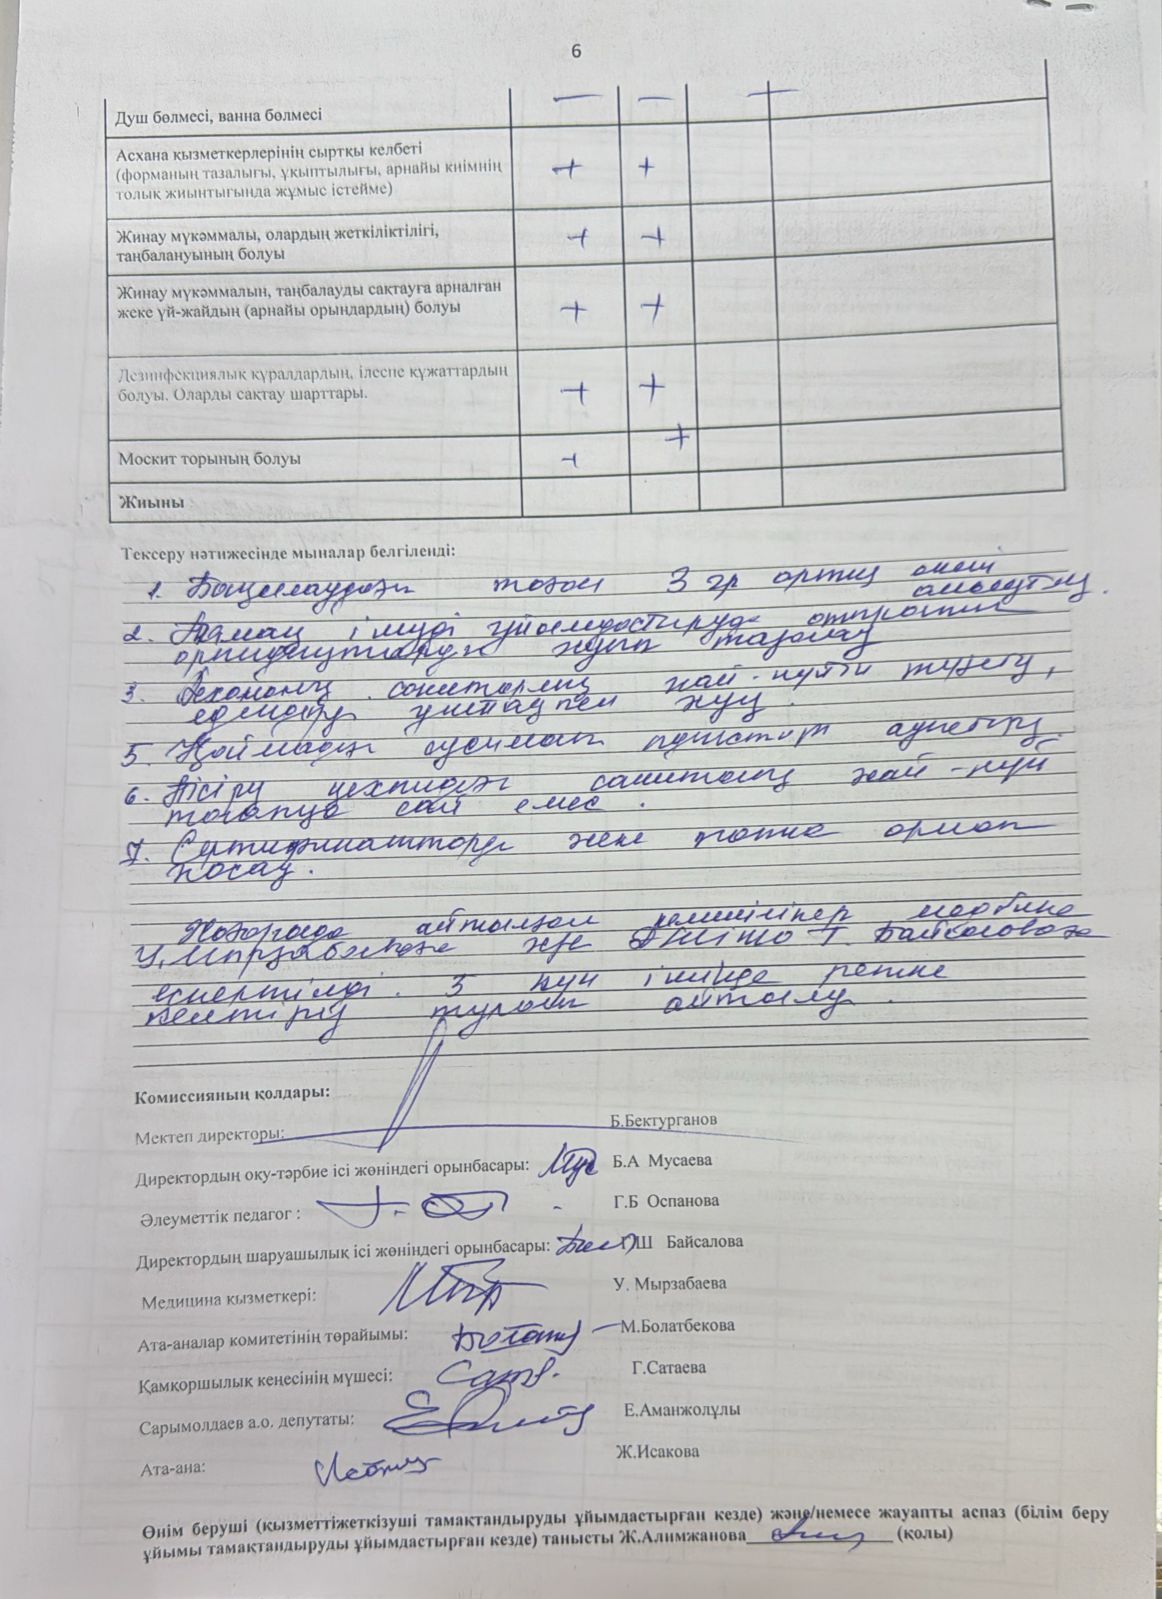 6
Душ бөлмесі, ванна бөлмесі — — +
Асхана қызметкерлерінің сыртқы келбеті
(форманың тазалығы, ұқыптылығы, арнайы киімнің
толық жиынтығында жұмыс істейме) + +
Жинау мүкәммалы, олардың жеткіліктілігі,
таңбалануының болуы + +
Жинау мүкәммалын, таңбалауды сақтауға арналған
жеке үй-жайдың (арнайы орындардың) болуы + +
Дезинфекциялық құралдардың, ілеспе құжаттардың
болуы. Оларды сақтау шарттары. + +
Москит торының болуы + +
Жиыны
Тексеру нәтижесінде мыналар белгіленді:
1. Бақылаудағы тағам 3 гр артық
2. Тамақ ішуді ұйымдастыруда
тазалау
3. Асхананың санитарлық жай-күйін түзету,
жуу.
5. Қоймадағы ауыстыру.
6. Пісіру цехындағы санитарлық жай-күй
талапқа сай емес.
7. Сертификаттарды жеке папка арнап
жасау.
Жоғарыда айтылған кемшіліктер медбике
У.Мырзабаеваға және Г. Байсаловаға
ескертілді. 3 күн ішінде ретке
келтіру туралы айтылды.
Комиссияның қолдары:
Мектеп директоры: Б.Бектурганов
Директордың оқу-тәрбие ісі жөніндегі орынбасары: Б.А Мусаева
Әлеуметтік педагог : Г.Б Оспанова
Директордың шаруашылық ісі жөніндегі орынбасары: Г.Ш Байсалова
Медицина қызметкері: У. Мырзабаева
Ата-аналар комитетінің төрайымы: М.Болатбекова
Қамқоршылық кеңесінің мүшесі: Г.Сатаева
Сарымолдаев а.о. депутаты: Е.Аманжолұлы
Ата-ана: Ж.Исакова
Өнім беруші (қызметтіжеткізуші тамақтандыруды ұйымдастырған кезде) және/немесе жауапты аспаз (білім беру
ұйымы тамақтандыруды ұйымдастырған кезде) танысты Ж.Алимжанова (қолы)